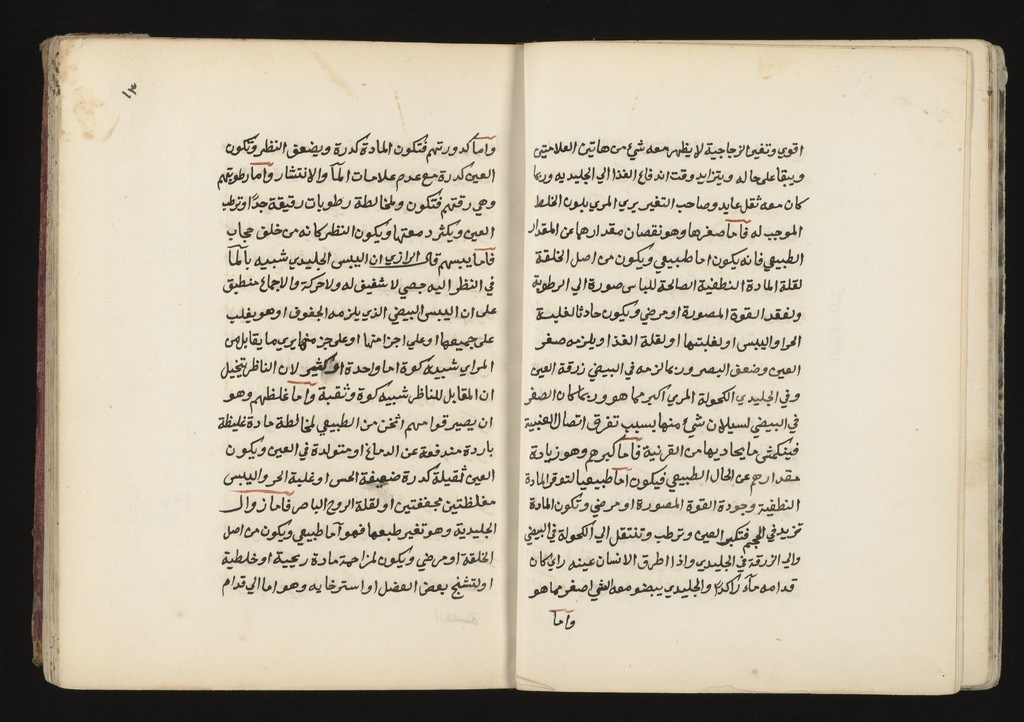 اقوي وتغير الزجاجية لا يظهر معه شئ من هاتين العلامتين
ويبقا على حاله ويتزايد وقت اندفاع الغذا الي الجليديه وربما
كان معه ثقل عايد وصاحب التغير يري المري بلون الخلط
الموجب له فاما صغرها وهو نقصان مقدارها عن المقدار
الطبيعي فانه يكون اما طبيعي ويكون من اصل الخلقة
لقلة المادة النطفية الصالحة للباس صورة الي الرطوبة
ولفقد القوة المصورة او مرضي ويكون حادثا لغلبة
الحر او اليبس او لغلبتها او لقلة الغذا ويلزمه صغر
العين وضعف البصر وربما لزمه في البيضي زرقة العين
وفي الجليدي الكحولة المري اكبر مما هو وربما كان الصغر
في البيضي لسيلان شئ منها بسبب تفرق اتصال العنبية
فينكمش ما يحاديها من القرنية فاما كبرهم وهو زيادة
مقدارهم عن الحال الطبيعي فيكون اما طبيعيا لتوفر المادة
النطفية وجودة القوة المصورة او مرضي وتكون المادة
تزيد في الحجم فتكبر العين وترطب وتنتقل الي الكحولة في البيضي
والي الزرقة في الجليدي واذا اطرق الانسان عينه راي كان
قدامه ماء راكدا والجليدي يبضو معه الشي اصغر مما هو
واما
١٣
واما كدورتهم فتكون المادة كدرة ويضعف النظر وتكون
العين كدرة مع عدم علامات المآ والانتشار واما رطوبتهم
وهي رقتهم فتكون ولمخالطة رطوبات رقيقة جدا وترطب
العين ويكثر دمعتها ويكون النظر كانه من خلف حجاب
فاما يبسهم قال الرازي ان اليبس الجليدي شبيه بالمآ
في النظر اليه جصي لا شفيف له ولا حركة والاجماع منطبق
على ان اليبس البيضي الذي يلزمه الجفوف او هو يغلب
على جميعها او علي اجزا منها او على جز منها يري ما يقابل من
المراي شبيه كوة اما واحدة او كثير لان الناظر يتخيل
ان المقابل للناظر شبيه كوة وثقبة واما غلظهم وهو
ان يصير قوامهم اثخن من الطبيعي لمخالطة مادة غليظة
باردة مندفعة عن الدماغ او متولدة في العين ويكون
العين ثقيلة كدرة ضعيفة الحس او غلبة الحر واليبس
مغلظتين مجففتين او لقلة الروح الباصر فاما زوال
الجليدية وهو تغير طبعها فهو اما طبيعي ويكون من اصل
الخلقة او مرضي ويكون لمزاحمة مادة ريحية او خلطية
او لتشنج بعض العضل او استرخايه وهو اما الي قدام